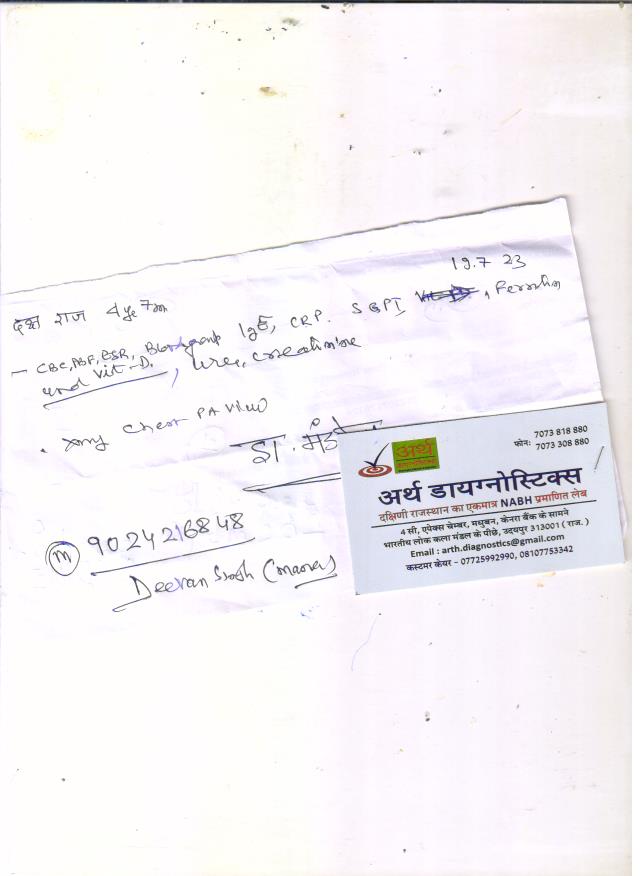 19.7 23
दक्ष राज 4 ye 7 m
- CBC, PBF, ESR, Bloodgroup IgE, CRP. SGPT , Ferritin
and Vit-D. , Urea, Creatinine
. Xray Chest PA View
डा.
(m) 9024216848
Singh
7073 818 880
फोन: 7073 308 880
अर्थ
अर्थ डायग्नोस्टिक्स
दक्षिणी राजस्थान का एकमात्र NABH प्रमाणित लेब
4 सी, एपेक्स चेम्बर, मधुबन, केनरा बैंक के सामने
भारतीय लोक कला मंडल के पीछे, उदयपुर 313001 ( राज. )
Email : arth.diagnostics@gmail.com
कस्टमर केयर - 07725992990, 08107753342